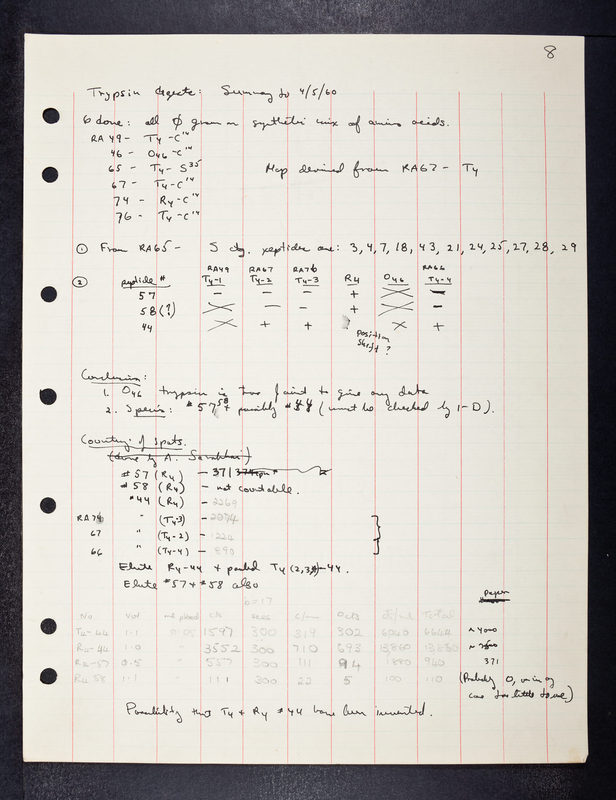 8
Trypsin digests: Summary to 4/5/60
6 done: all grown on synthetic mix of amino acids.
RA 49 - T4 - C14
46 - O46 - C14
65 - T4 - S35 Map derived from RA67 - T4
67 - T4 - C14
74 - R4 - C14
76 - T4 - C14
① From RA65 - S ctg. peptides are: 3, 4, 7, 18, 43, 21, 24, 25, 27, 28, 29
RA49 RA67 RA76 RA66
② peptide # T4-1 T4-2 T4-3 R4 O46 T4-4
57 - - - + -
58 (?) - - + -
44 + + ? +
position shift?
Conclusion:
1. O46 trypsin is too faint to give any data
2. Specific: #57, 58 + possibly #44 (must be checked by 1-D).
Counting of spots.
(done by A. Sarabhai)
#57 (R4) - 371
#58 (R4) - not countable.
#44 (R4) - 2269
RA76 " (T4-3) - 2074
67 " (T4-2) - 1224
66 " (T4-4) - 890
Elute R4-44 + pooled T4 (2,3,4)-44.
Elute #57 + #58 also
b=17 paper
No. vol cts secs c/min Total
T4-44 1.1 1597 300 319 302 6040 6644
R4-44 1.0 " 3552 300 710 693 13860 13860
R4-57 0.5 " 557 300 111 94 1880 940 371
R4 58 1.1 " 111 300 22 5 100 110 (Probably 0, in any case too little to use)
Possibility that T4 + R4 #44 have been inverted.